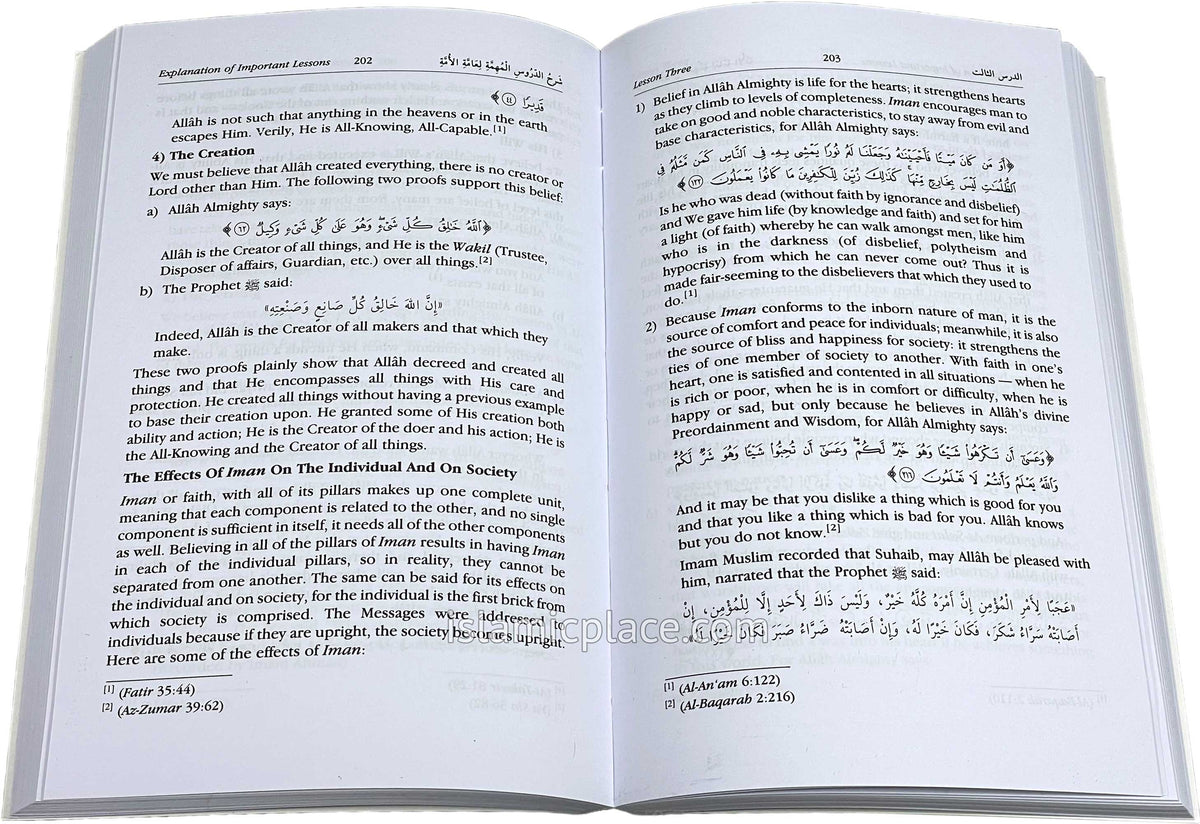 Explanation of Important Lessons 202 شَرْحُ الدُّرُوسِ الْمُهِمَّةِ لِعَامَّةِ الأُمَّةِ
قَدِيرًا ﴿٤٤﴾
Allâh is not such that anything in the heavens or in the earth
escapes Him. Verily, He is All-Knowing, All-Capable.[1]
4) The Creation
We must believe that Allâh created everything, there is no creator or
Lord other than Him. The following two proofs support this belief:
a) Allâh Almighty says:
﴿ٱللَّهُ خَٰلِقُ كُلِّ شَىْءٍ وَهُوَ عَلَىٰ كُلِّ شَىْءٍ وَكِيلٌ ﴿٦٢﴾
Allâh is the Creator of all things, and He is the Wakil (Trustee,
Disposer of affairs, Guardian, etc.) over all things.[2]
b) The Prophet ﷺ said:
«إِنَّ اللهَ خَالِقُ كُلِّ صَانِعٍ وَصَنْعَتِهِ»
Indeed, Allâh is the Creator of all makers and that which they
make.
These two proofs plainly show that Allâh decreed and created all
things and that He encompasses all things with His care and
protection. He created all things without having a previous example
to base their creation upon. He granted some of His creation both
ability and action; He is the Creator of the doer and his action; He is
the All-Knowing and the Creator of all things.
The Effects Of Iman On The Individual And On Society
Iman or faith, with all of its pillars makes up one complete unit,
meaning that each component is related to the other, and no single
component is sufficient in itself, it needs all of the other components
as well. Believing in all of the pillars of Iman results in having Iman
in each of the individual pillars, so in reality, they cannot be
separated from one another. The same can be said for its effects on
the individual and on society, for the individual is the first brick from
which society is comprised. The Messages were addressed to
individuals because if they are upright, the society becomes upright.
Here are some of the effects of Iman:
[1] (Fatir 35:44)
[2] (Az-Zumar 39:62)
Lesson Three 203 الدرس الثالث
1) Belief in Allâh Almighty is life for the hearts; it strengthens hearts
as they climb to levels of completeness. Iman encourages man to
take on good and noble characteristics, to stay away from evil and
base characteristics, for Allâh Almighty says:
﴿أَوَ مَن كَانَ مَيْتًا فَأَحْيَيْنَٰهُ وَجَعَلْنَا لَهُۥ نُورًا يَمْشِى بِهِۦ فِى ٱلنَّاسِ كَمَن مَّثَلُهُۥ فِى
ٱلظُّلُمَٰتِ لَيْسَ بِخَارِجٍ مِّنْهَا كَذَٰلِكَ زُيِّنَ لِلْكَٰفِرِينَ مَا كَانُوا۟ يَعْمَلُونَ ﴿١٢٢﴾
Is he who was dead (without faith by ignorance and disbelief)
and We gave him life (by knowledge and faith) and set for him
a light (of faith) whereby he can walk amongst men, like him
who is in the darkness (of disbelief, polytheism and
hypocrisy) from which he can never come out? Thus it is
made fair-seeming to the disbelievers that which they used to
do.[1]
2) Because Iman conforms to the inborn nature of man, it is the
source of comfort and peace for individuals; meanwhile, it is also
the source of bliss and happiness for society: it strengthens the
ties of one member of society to another. With faith in one's
heart, one is satisfied and contented in all situations — when he
is rich or poor, when he is in comfort or difficulty, when he is
happy or sad, but only because he believes in Allâh's divine
Preordainment and Wisdom, for Allâh Almighty says:
﴿وَعَسَىٰٓ أَن تَكْرَهُوا۟ شَيْـًٔا وَهُوَ خَيْرٌ لَّكُمْ وَعَسَىٰٓ أَن تُحِبُّوا۟ شَيْـًٔا وَهُوَ شَرٌّ لَّكُمْ
وَٱللَّهُ يَعْلَمُ وَأَنتُمْ لَا تَعْلَمُونَ ﴿٢١٦﴾
And it may be that you dislike a thing which is good for you
and that you like a thing which is bad for you. Allâh knows
but you do not know.[2]
Imam Muslim recorded that Suhaib, may Allâh be pleased with
him, narrated that the Prophet ﷺ said:
«عَجَبًا لِأَمْرِ الْمُؤْمِنِ إِنَّ أَمْرَهُ كُلَّهُ خَيْرٌ، وَلَيْسَ ذَاكَ لِأَحَدٍ إِلَّا لِلْمُؤْمِنِ، إِنْ
أَصَابَتْهُ سَرَّاءُ شَكَرَ، فَكَانَ خَيْرًا لَهُ، وَإِنْ أَصَابَتْهُ ضَرَّاءُ صَبَرَ فَكَانَ خَيْرًا لَهُ»
[1] (Al-An'am 6:122)
[2] (Al-Baqarah 2:216)
islamicplace.com